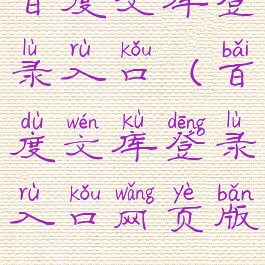 百度文库登
lù rù kǒu bǎi
录入口（百
dù wén kù dēng lù
度文库登录
rù kǒu wǎng yè bǎn
入口网页版